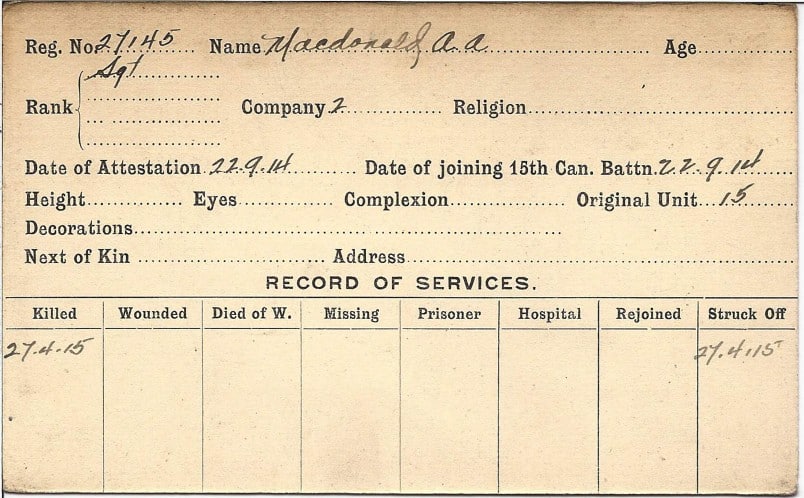 Reg. No. 27145 Name Macdonald A. A. Age
Sgt
Rank Company 2 Religion
Date of Attestation 22.9.14 Date of joining 15th Can. Battn. 22.9.14
Height Eyes Complexion Original Unit 15
Decorations
Next of Kin Address
RECORD OF SERVICES.
Killed Wounded Died of W. Missing Prisoner Hospital Rejoined Struck Off
27.4.15 27.4.15